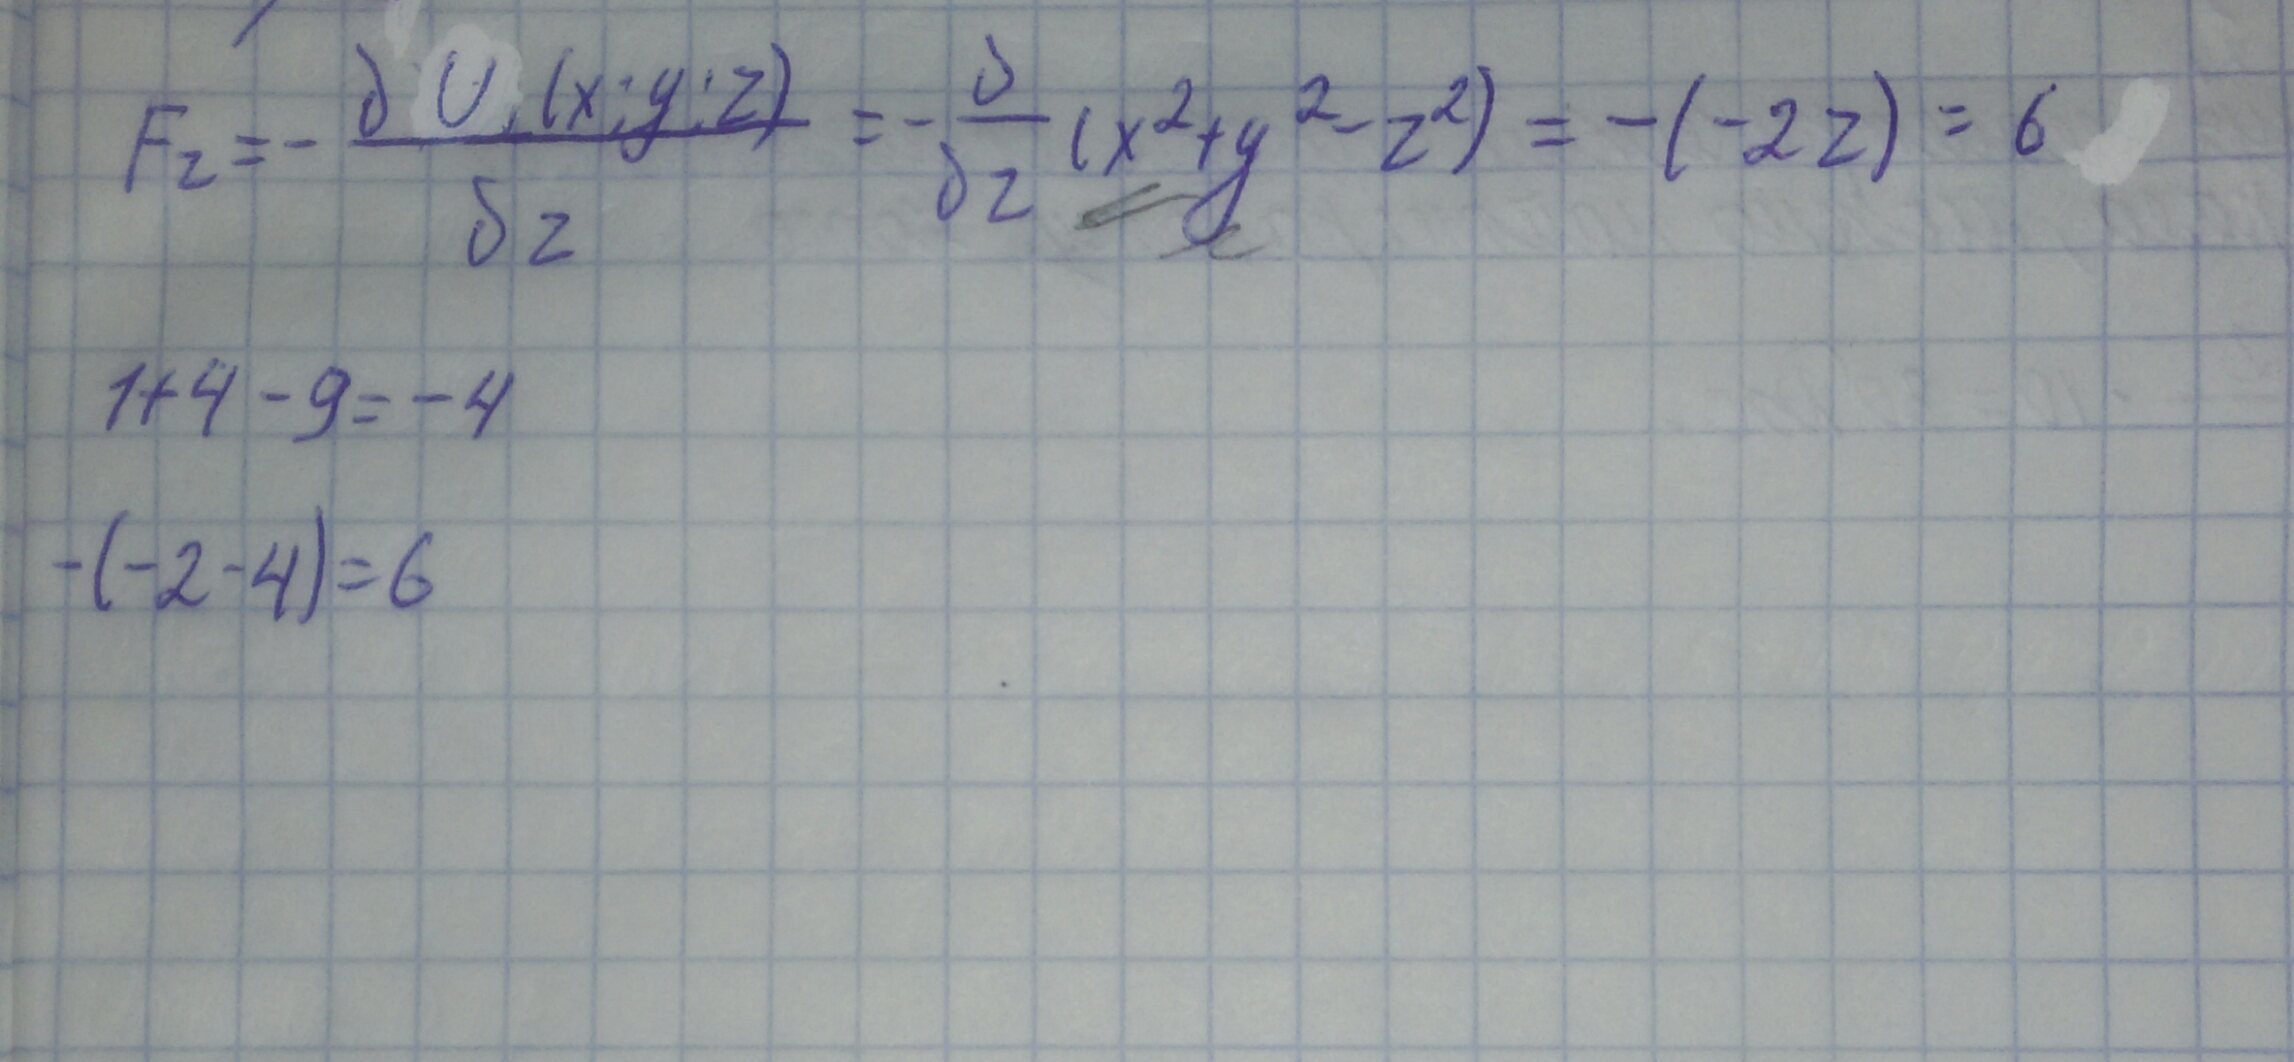 Fz = - ∂U(x;y;z)/∂z = - ∂/∂z (x²+y²-z²) = -(-2z) = 6
1+4-9=-4
-(-2-4)=6